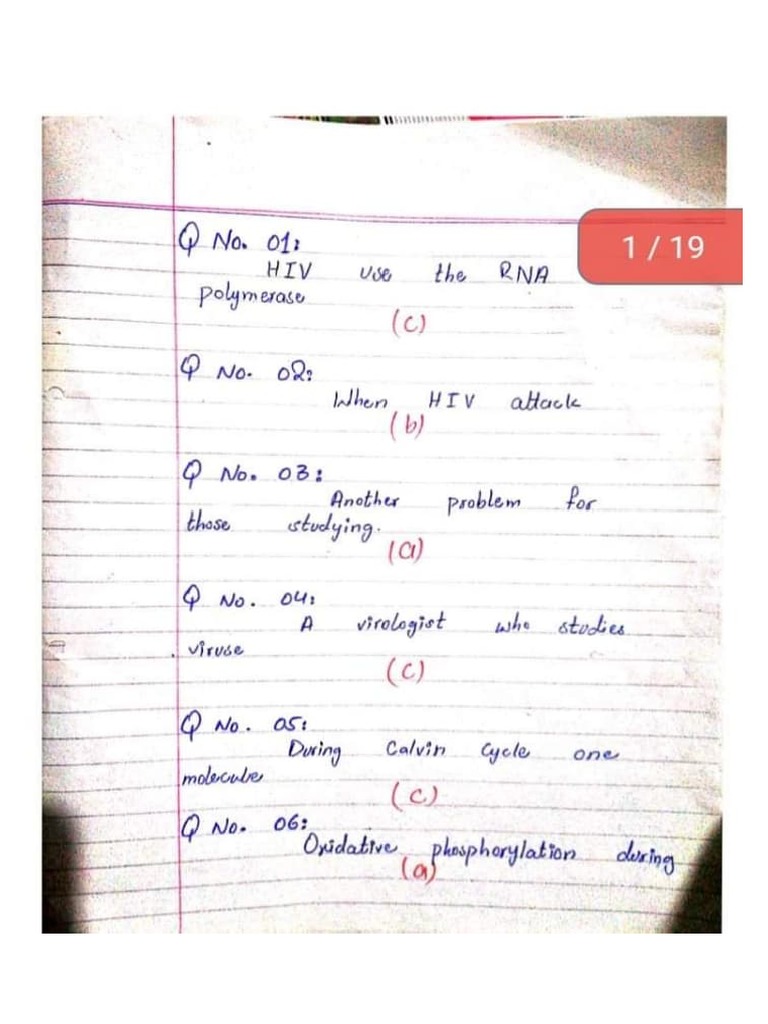 Q No. 01:
1 / 19
HIV use the RNA
polymerase
(c)
Q No. 02:
When HIV attack
(b)
Q No. 03:
Another problem for
those studying.
(a)
Q No. 04:
A virologist who studies
viruse
(c)
Q No. 05:
During Calvin Cycle one
molecule
(c)
Q No. 06:
Oxidative phosphorylation during
(a)